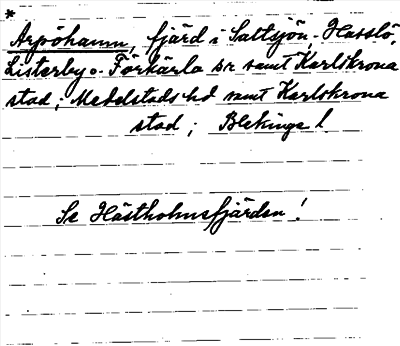 *
Arpöhamn, fjärd i Saltsjön - Hasslö,
Listerby o. Förkärla snr samt Karlskrona
stad; Medelstads hd samt Karlskrona
stad; Blekinge l
Se Hästholmsfjärden!